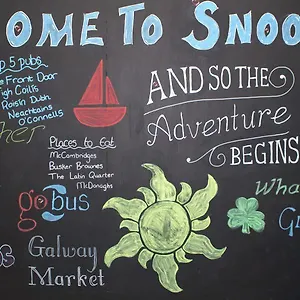 OME TO SNOO
p 5 pubs
Front Door
igh Coill's
Raisin Dubh
Neachtains
O'Connells
her
AND SO THE
Adventure
BEGINS
Places to Eat
McCambridges
Busker Brownes
The Latin Quarter
McDonaghs
gobus
Galway
Market
Wha